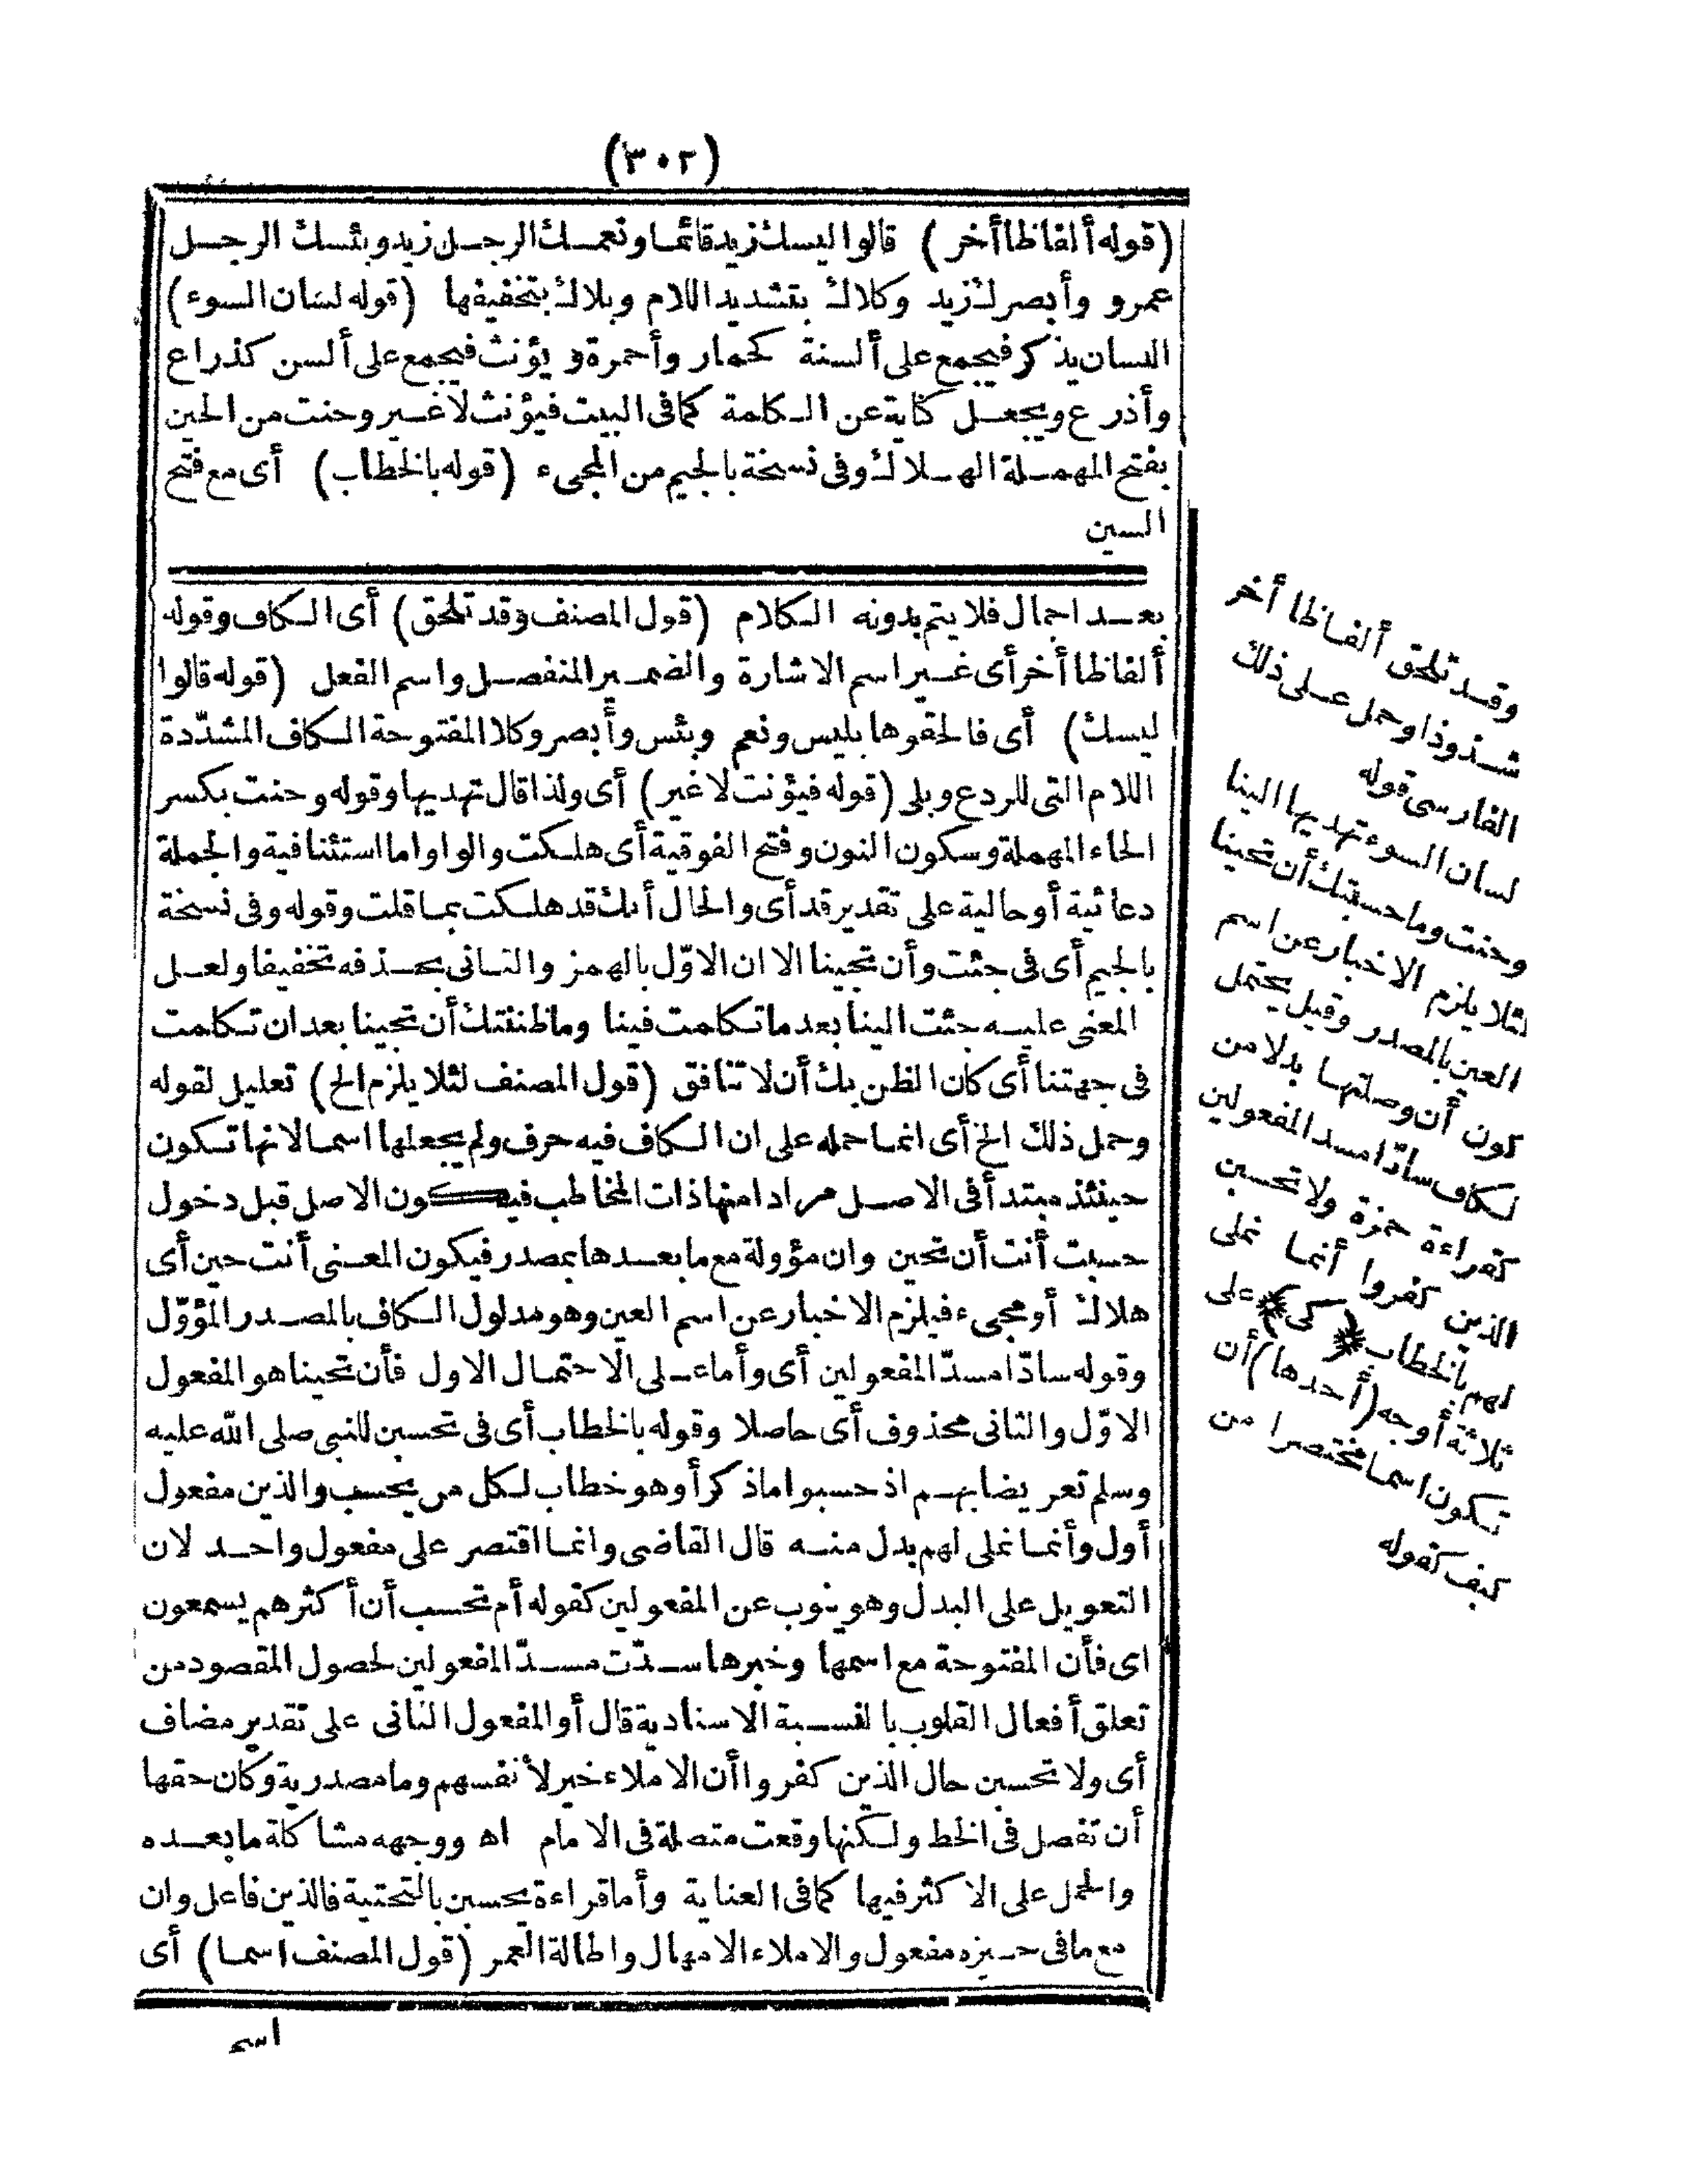 (٣٠٢)
(قوله ألفاظا أخر) قالوا ليسك زيد قائما ونعمك الرجل زيد وبئسك الرجل
عمرو وأبصرك زيد وكلاك بتشديد اللام وبلاك بتخفيفها (قوله لسان السوء)
اللسان يذكر فيجمع على ألسنة كحمار وأحمرة ويؤنث فيجمع على ألسن كذراع
وأذرع ويجعل كناية عن الكلمة كما فى البيت فيؤنث لا غير وحنت من الحين
بفتح المهملة الهلاك وفى نسخة بالجيم من المجىء (قوله بالخطاب) أى مع فتح
السين
بعد اجمال فلا يتم بدونه الكلام (قول المصنف وقد تلحق) أى الكاف وقوله
ألفاظا أخر أى غير اسم الاشارة والضمير المنفصل واسم الفعل (قوله قالوا
ليسك) أى فالحقوها بليس ونعم وبئس وأبصر وكلا المفتوحة الكاف المشدّدة
اللام التى للردع وبلى (قوله فيؤنت لا غير) أى ولذا قال تهديها وقوله وحنت بكسر
الحاء المهملة وسكون النون وفتح الفوقية أى هلكت والواو اما استئنافية والجملة
دعائية أو حالية على تقدير قد أى والحال أنك قد هلكت بما قلت وقوله وفى نسخة
بالجيم أى فى جئت وأن تجينا الا ان الاوّل بالهمز والثانى بحذفه تخفيفا ولعل
المعنى عليه جئت الينا بعد ما تكلمت فينا وما ظننتك أن تجينا بعد ان تكلمت
فى جهتنا أى كان الظن بك أن لا تنافق (قول المصنف لئلا يلزم الخ) تعليل لقوله
وحمل ذلك الخ أى انما حمله على ان الكاف فيه حرف ولم يجعلها اسما لانها تكون
حينئذ مبتدأ فى الاصل مرادا منها ذات المخاطب فيكون الاصل قبل دخول
حسبت أنت أن تحين وان مؤولة مع ما بعدها بمصدر فيكون المعنى أنت حين أى
هلاك أو مجىء فيلزم الاخبار عن اسم العين وهو مدلول الكاف بالمصدر المؤوّل
وقوله سادّا مسدّ المفعولين أى وأما على الاحتمال الاول فأن تحينا هو المفعول
الاوّل والثانى محذوف أى حاصلا وقوله بالخطاب أى فى تحسبن للنبى صلى الله عليه
وسلم تعريضا بهم اذ حسبوا ما ذكر أو هو خطاب لكل من يحسب والذين مفعول
أول وأنما نملى لهم بدل منه قال القاضى وانما اقتصر على مفعول واحد لان
التعويل على البدل وهو ينوب عن المفعولين كقوله أم تحسب أن أكثرهم يسمعون
اى فأن المفتوحة مع اسمها وخبرها سدّت مسدّ المفعولين لحصول المقصود من
تعلق أفعال القلوب بالنسبة الاسنادية قال أو المفعول الثانى على تقدير مضاف
أى ولا تحسبن حال الذين كفروا أن الاملاء خير لأنفسهم وما مصدرية وكان حقها
أن تفصل فى الخط ولكنها وقعت متصلة فى الامام اه ووجهه مشاكلة ما بعده
والحمل على الاكثر فيها كما فى العناية وأما قراءة يحسبن بالتحتية فالذين فاعل وان
مع ما فى حيزه مفعول والاملاء الامهال واطالة العمر (قول المصنف اسما) أى
اسم
وقد تلحق ألفاظا أخر
شذوذا وحمل على ذلك
الفارسى قوله
لسان السوء تهديها الينا
وحنت وما حسبتك أن تحينا
لئلا يلزم الاخبار عن اسم
العين بالمصدر وقيل يحتمل
كون أن وصلتها بدلا من
الكاف سادّا مسد المفعولين
كقراءة حمزة ولا تحسبن
الذين كفروا أنما نملى
لهم بالخطاب (كى) على
ثلاثة أوجه (أحدها) أن
تكون اسما مختصرا من
كيف كقوله